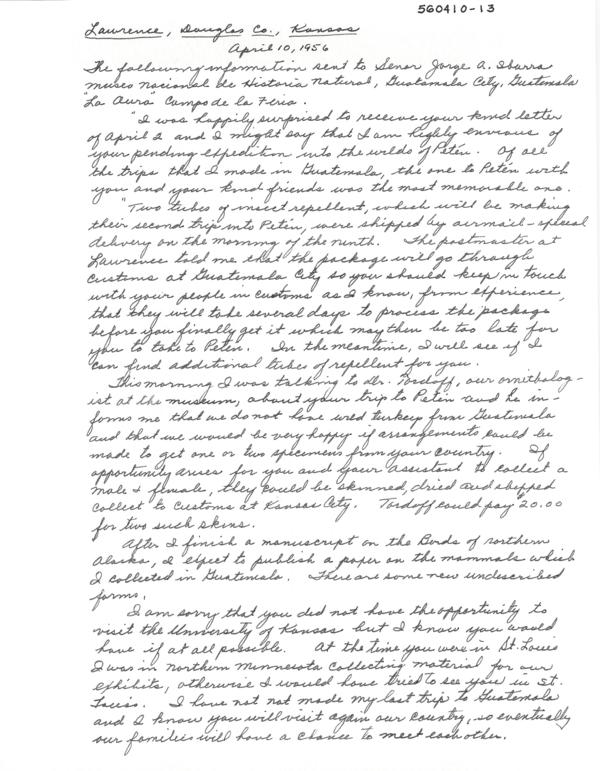 560410-13
Lawrence, Douglas Co., Kansas
April 10, 1956
The following information sent to Senor Jorge A. Ibarra
Museo Nacional de Historia Natural, Guatemala City, Guatemala
"La Aura Campo de la Feria.
"I was happily surprised to receive your kind letter
of April 2 and I might say that I am highly envious of
your pending expedition into the wilds of Petén. Of all
the trips that I made in Guatemala, the one to Petén with
you and your kind friends was the most memorable one.
"Two tubes of insect repellent, which will be making
their second trip into Petén, were shipped by airmail-special
delivery on the morning of the ninth. The postmaster at
Lawrence told me that the package will go through
Customs at Guatemala City so you should keep in touch
with your people in customs as I know, from experience,
that they will take several days to process the package
before you finally get it which may then be too late for
you to take to Petén. In the meantime, I will see if I
can find additional tubes of repellent for you.
This morning I was talking to Dr. Tordoff, our ornitholog-
ist at the museum, about your trip to Petén and he in-
forms me that we do not have wild turkey from Guatemala
and that we would be very happy if arrangements could be
made to get one or two specimens from your country. If
opportunity arises for you and your assistant to collect a
male & female, they could be skinned, dried and shipped
collect to Customs at Kansas City. Tordoff could pay $20.00
for two such skins.
After I finish a manuscript on the Birds of northern
Alaska, I expect to publish a paper on the mammals which
I collected in Guatemala. There are some new undescribed
forms.
I am sorry that you did not have the opportunity to
visit the University of Kansas but I know you would
have if at all possible. At the time you were in St. Louis
I was in northern Minnesota collecting material for our
exhibits, otherwise I would have tried to see you in St.
Louis. I have not not made my last trip to Guatemala
and I know you will visit again our country, so eventually
our families will have a chance to meet each other.